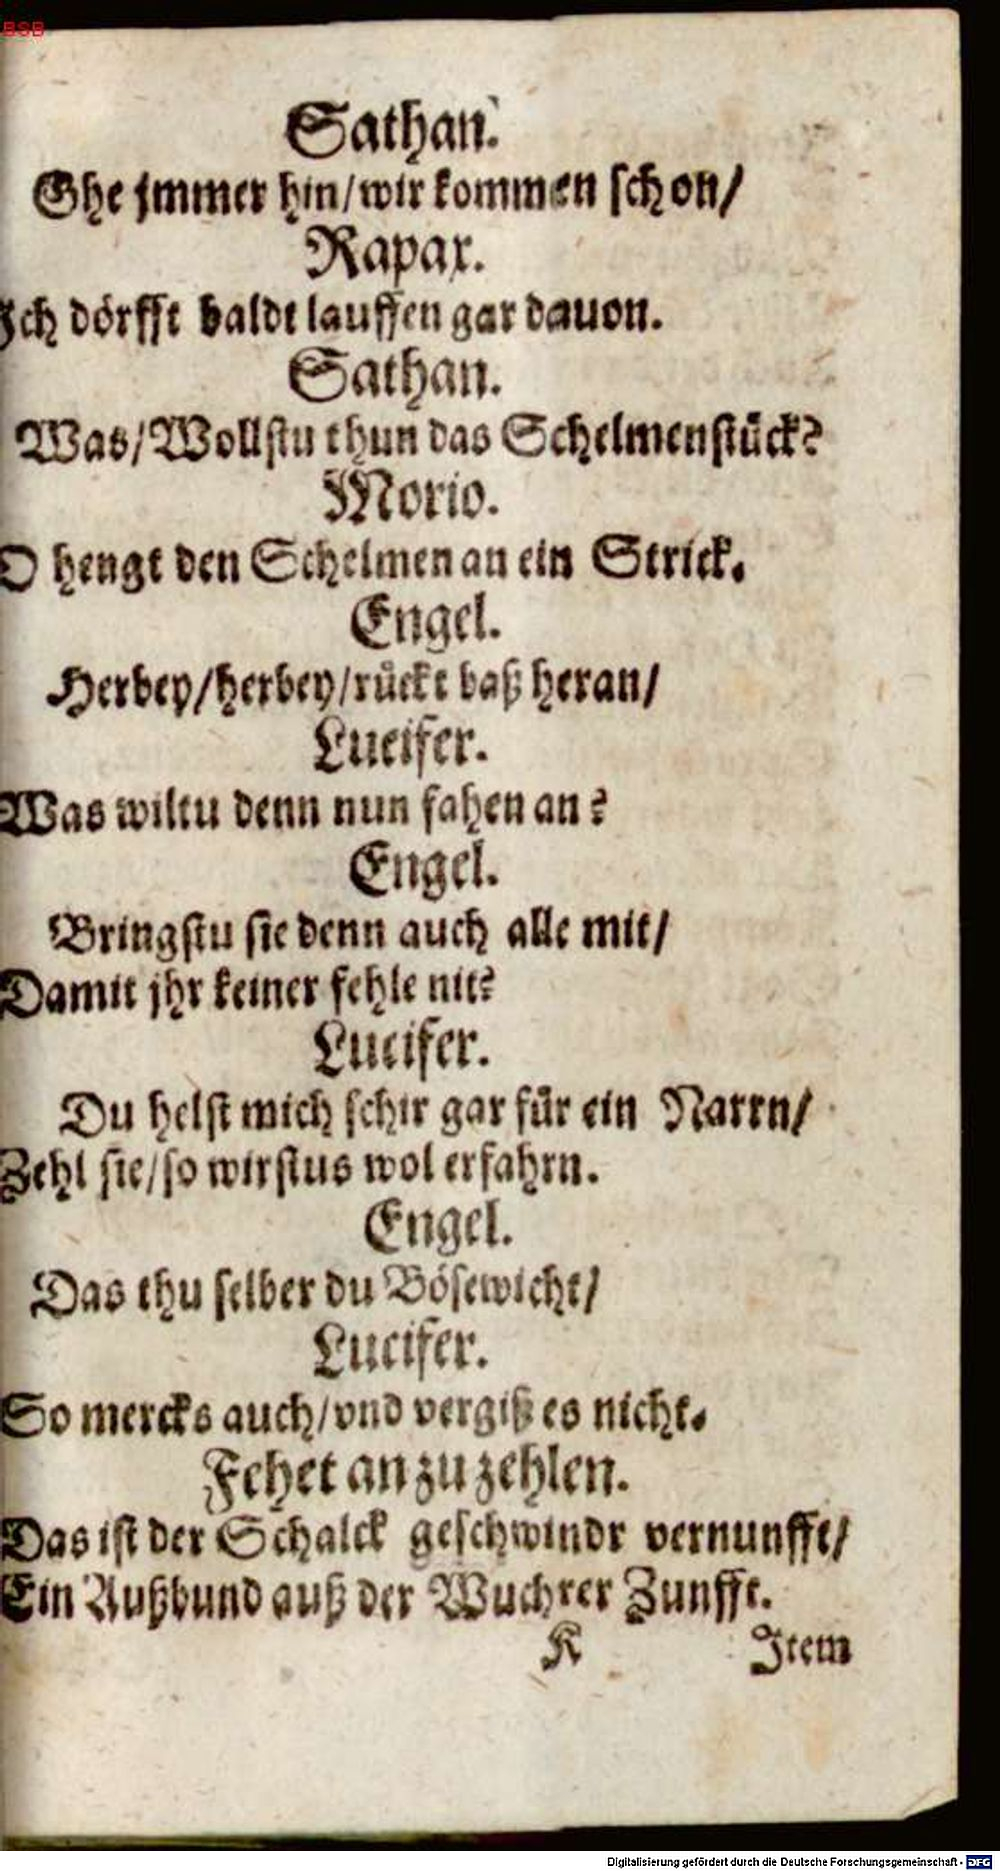 BSB
Sathan.
Ghe jmmer hin/wir kommen schon/
Rapax.
Ich dörfft baldt lauffen gar dauon.
Sathan.
Was/Wollstu thun das Schelmenstück?
Morio.
O hengt den Schelmen an ein Strick.
Engel.
Herbey/herbey/rückt baß heran/
Lucifer.
Was wiltu denn nun fahen an?
Engel.
Bringstu sie denn auch alle mit/
Damit jhr keiner fehle nit?
Lucifer.
Du helst mich schir gar für ein Narrn/
Zehl sie/so wirstus wol erfahrn.
Engel.
Das thu selber du Bösewicht/
Lucifer.
So mercks auch/vnd vergiß es nicht.
Fehet an zu zehlen.
Das ist der Schalck geschwindr vernunfft/
Ein Außbund auß der Wuchrer Zunfft.
K Item
Digitalisierung gefördert durch die Deutsche Forschungsgemeinschaft - DFG